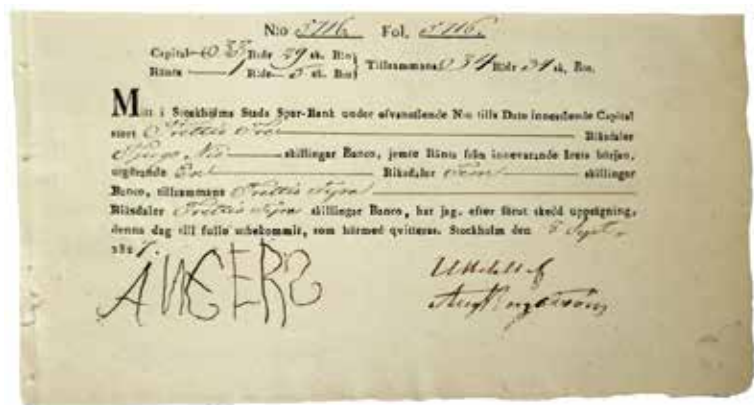 N:o 5716. Fol. 5716.
Capital 33 R:dr 29 sk. B:o
Ränta 1 R:dr 5 sk. B:o } Tillsammans 34 R:dr 34 sk. B:o.
Mitt i Stockholms Stads Spar-Bank under ofvanstående N:o tills Dato innestående Capital
stort Trettio Tre Riksdaler
Tjugo Nio skillingar Banco, jemte Ränta från innevarande årets början,
utgörande Riksdaler Fem skillingar
Banco, tillsammans Trettio Fyra
Riksdaler Trettio Fyra skillingar Banco, har jag, efter förut skedd uppsägning,
denna dag till fullo utbekommit, som härmed qvitteras. Stockholm den Sept.
182
ANGERS